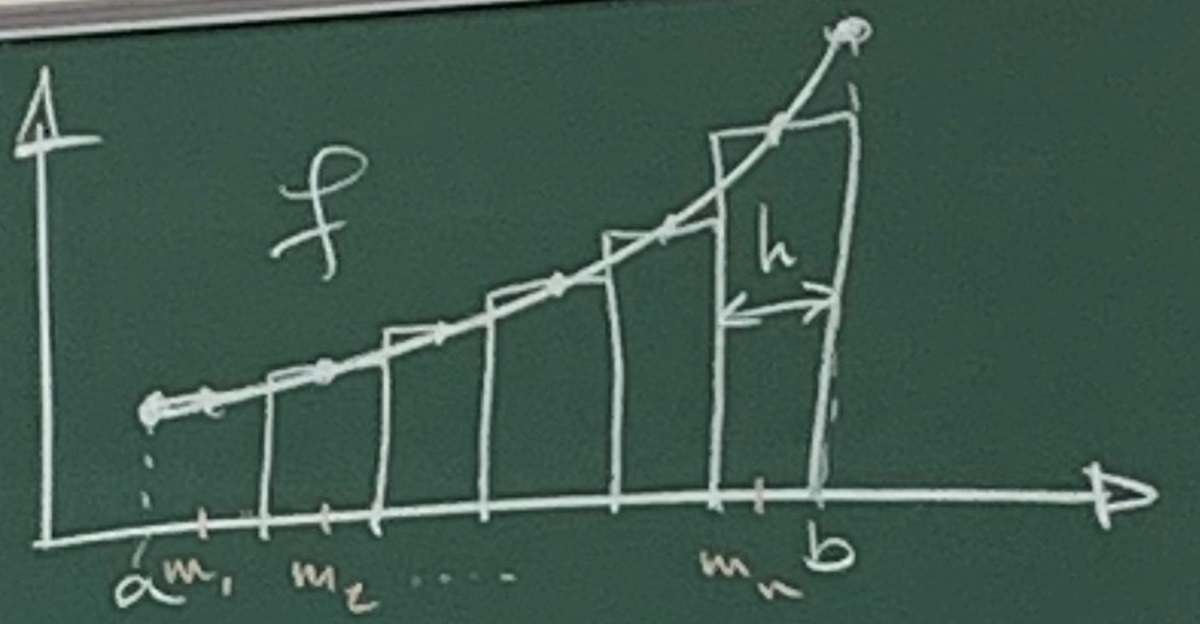 f
h
a m₁ m₂ ..... mₙ b